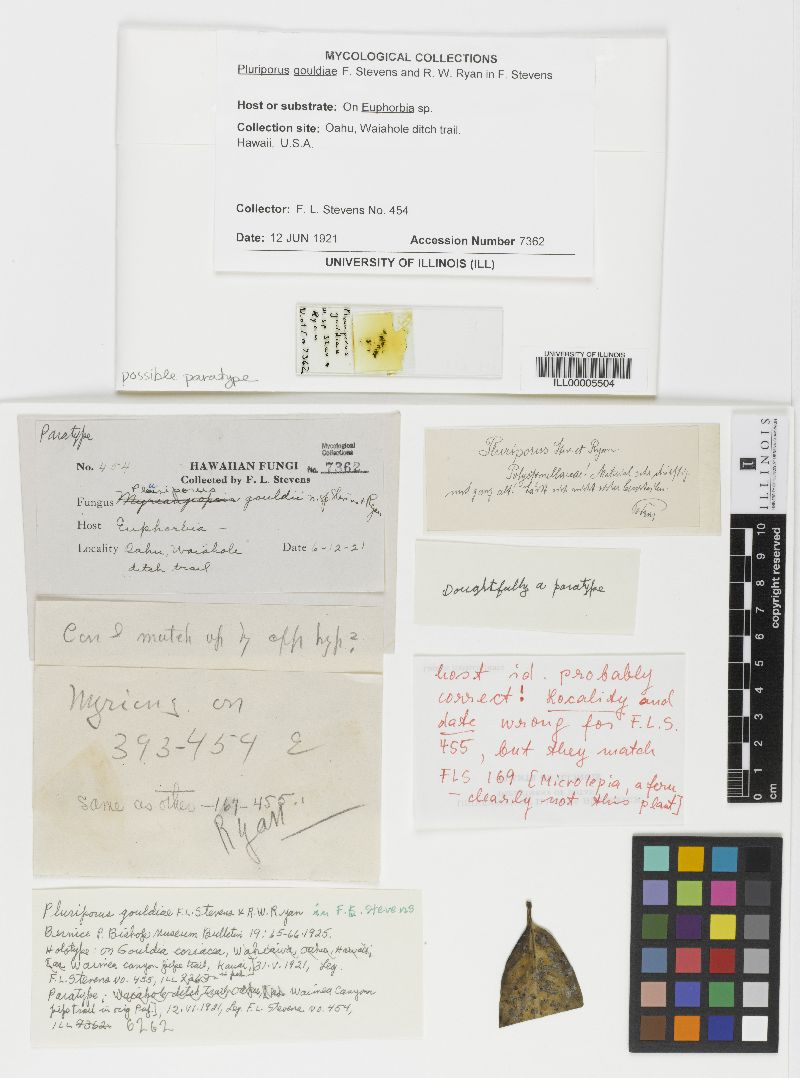 MYCOLOGICAL COLLECTIONS
Pluriporus gouldiae F. Stevens and R. W. Ryan in F. Stevens
Host or substrate: On Euphorbia sp.
Collection site: Oahu, Waiahole ditch trail.
Hawaii. U.S.A.
Collector: F. L. Stevens No. 454
Date: 12 JUN 1921 Accession Number 7362
UNIVERSITY OF ILLINOIS (ILL)
Pluriporus
gouldiae
n. sp Stev &
Ryan
7362
possible paratype
UNIVERSITY OF ILLINOIS
ILL00005504
Paratype
No. 454 HAWAIIAN FUNGI
Mycological
Collections
No. 7362
Collected by F. L. Stevens
Pluriporus
Fungus gouldii n. sp Stev. + Ryan
Host Euphorbia —
Locality Oahu, Waiahole Date 6-12-21
ditch trail
Can I match up by app hyp?
Myriang. on
393-454 E
Same as other -169-455.
Ryan
Pluriporus gouldiae F.L. Stevens & R.W. Ryan in F.L. Stevens
Bernice P. Bishop Museum Bulletin 19: 65-66. 1925.
Holotype: on Gouldia coriacea, Wahiawa, Oahu, Hawaii,
Waimea Canyon pipe trail, Kauai, 31.V.1921, Leg.
F.L. Stevens No. 455, ILL
Paratype: Waiahole ditch trail, Oahu, Waimea Canyon
pipe trail in orig. Pub], 12.VI.1921, Leg. F.L. Stevens No. 454,
ILL 7362 6262
Pluriporus Stev. et Ryan
Polystomellaceae! Material sehr dürftig
und ganz alt. Lässt sich nicht näher beschreiben.
Doughtfully a paratype
host id. probably
correct! Locality and
date wrong for F.L.S.
455, but they match
FLS 169 [Microlepia, a fern
- clearly not this plant]
ILLINOIS
copyright reserved
0 1 2 3 4 5 6 7 8 9 10
cm